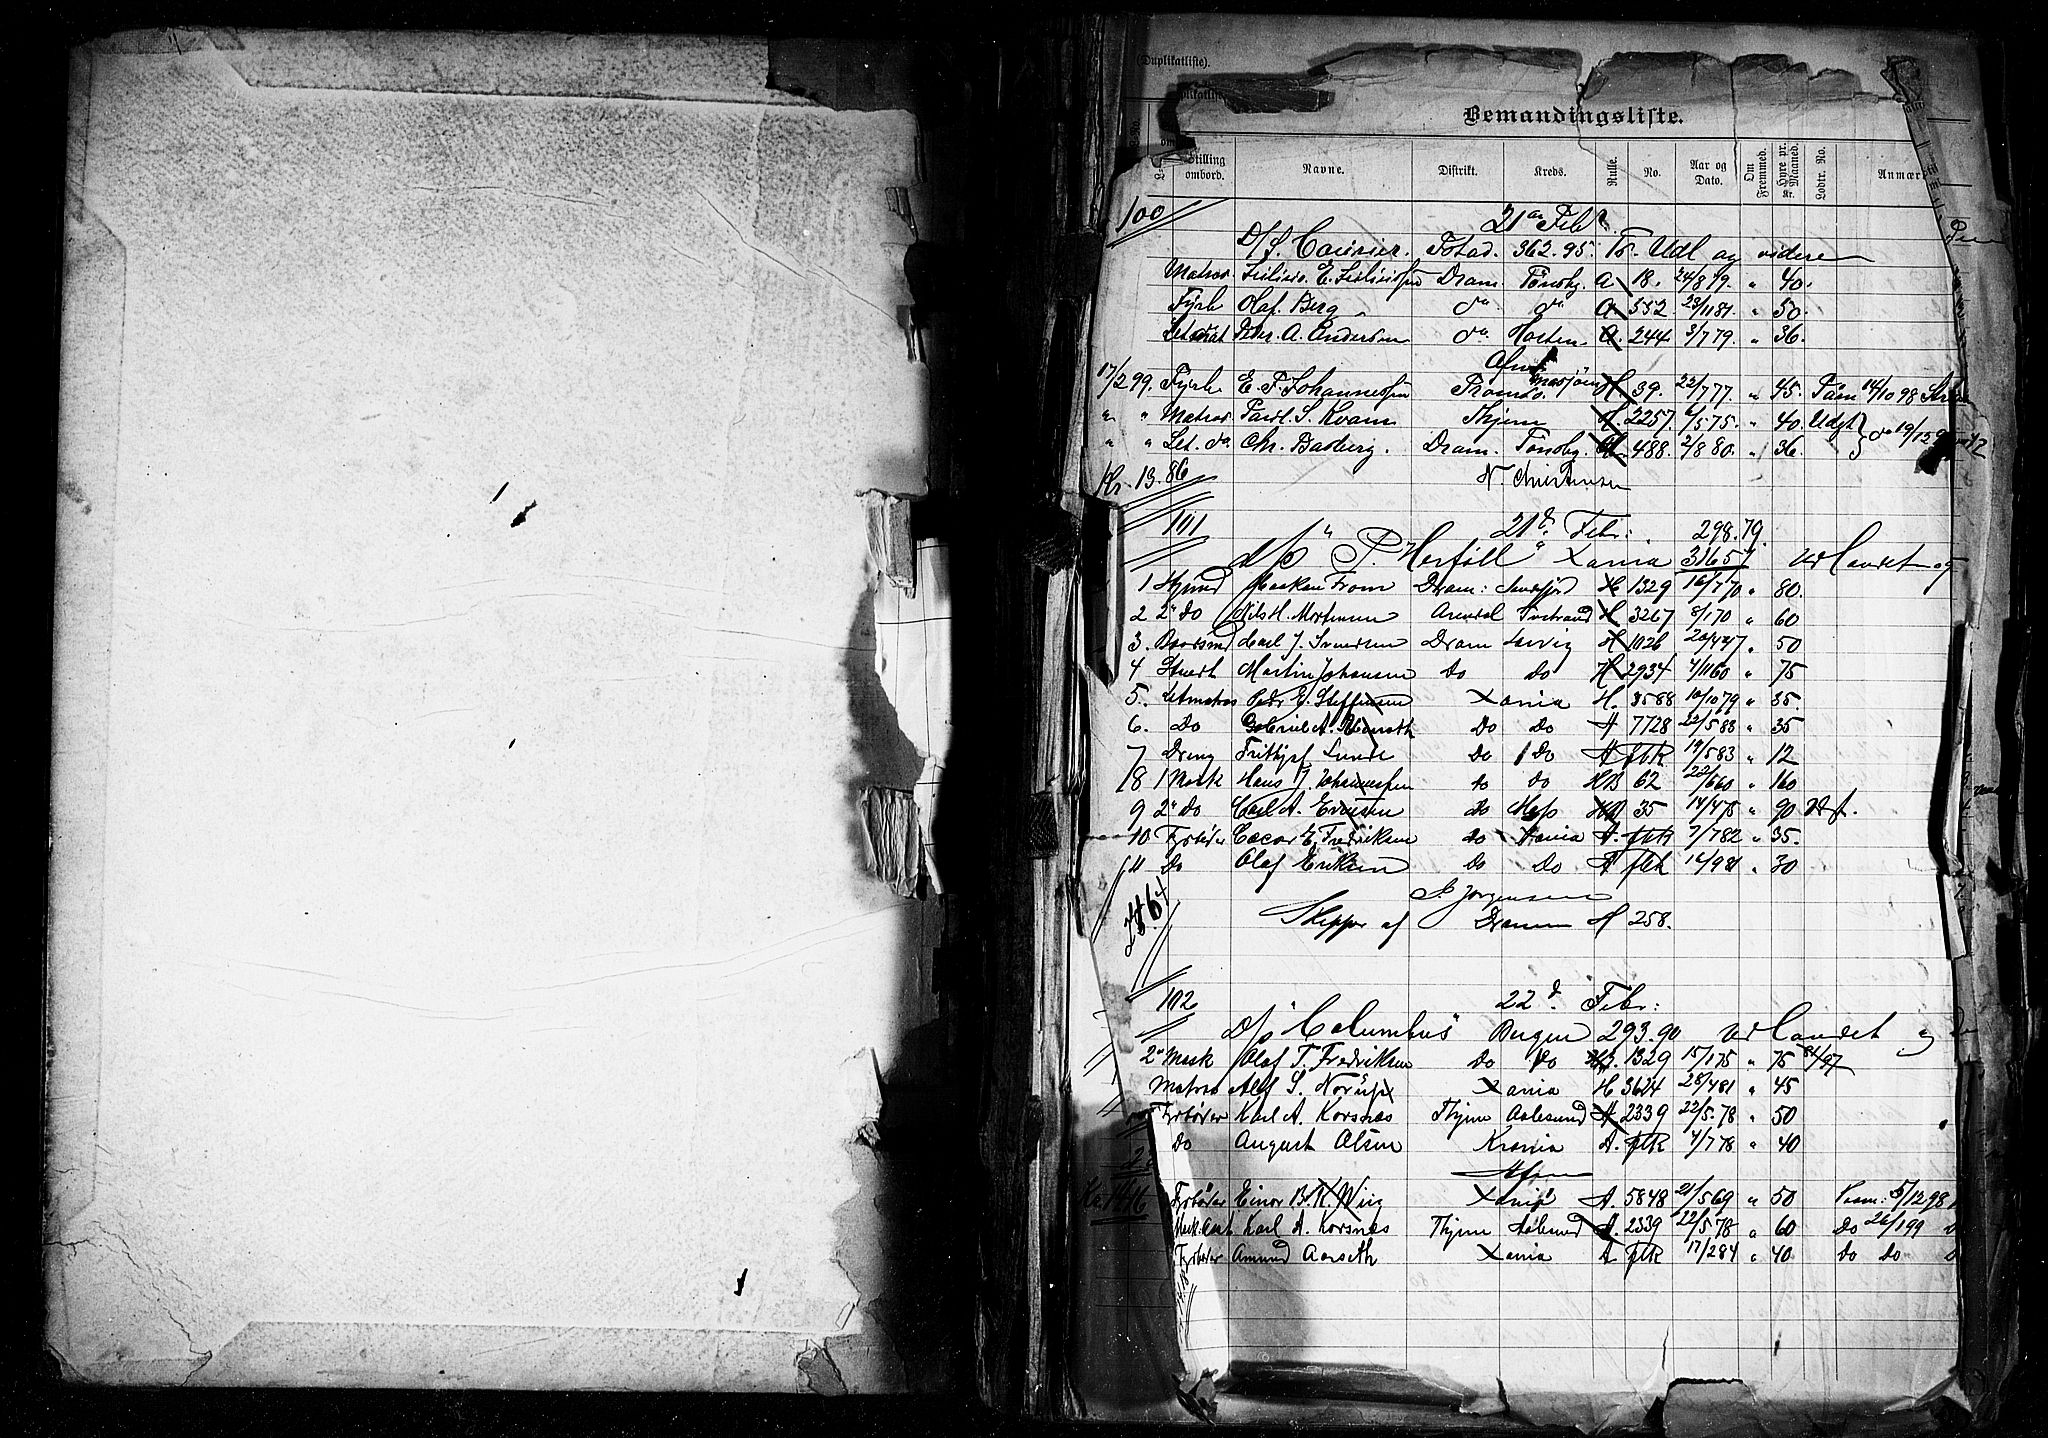 (Duplikatliste).
Bemandingsliste.
Stilling ombord. Navne. Distrikt. Kreds. Rulle. No. Aar og Dato. Om Fremmed. Hyre pr. Maaned. Kr. Lodtr. No. Anmær
100 21 Febr
D/S. Courier. Fstad. 362.95. Tr. Udl og videre
Matros. E. Dram. Tönsbg. A 18. 24/8 79. " 40.
Fyrb Olaf Berg do do A 552 23/11 81. " 50.
Letmat Peder. A. Andersen do. Horten A. 244 3/7 79. " 36.
Afm
17/2 99. Fyrb. E. P. Johannessen Tromsö. Mosjøen H. 39. 22/7 77. " 45. Paam 14/10 98
" " Matros Paul. S. Kvam Thjem H 2257. 6/5 75. " 40. Udgt
" " Let. do. Chr. Basberg. Dram. Tönsbg. A. 488. 2/8 80. " 36 do 19/12
Kr. 13. 86 N. Christensen
101 21d. Febr: 298.79.
d/s " P. Herföll " Xania 31657 Ud landet og
1 Styrmd From Dram: Sandefjord H 1329 16/7 70 " 80.
2 2" do Nils H. Mortensen Arendal Tvedestrand H 3267 8/1 70 " 60
3. Baadsmd Carl J. Svendsen Dram Larvig H 1026 20/4 47 " 50
4 Stuert Martin Johansen Do do H 2934 4/11 60 " 75
5. Letmatros Pedr E. Steffensen Xania H. 3588 10/10 79 " 35.
6. Do Gabriel A. Do do A 7728 22/5 83 " 35
7 Dreng Frithjof Lunde do Do A flk 19/5 83 " 12
8 1 Mask Hans J. Johannessen do do HB 62 22/6 60 " 160
9 2" do Carl A. Evensen do Moss HB 35 14/4 75 " 90 Udf.
10 Fyrböder Oscar E. Fredriksen do Xania A. flk 7/7 82 " 35.
11 Do Olaf Eriksen do Do A flk 14/9 81 " 30
S. Jörgensen
Skipper af Dramm H 258.
102 22d. Febr:
D/s "Columbus" Bergen 293.90 Ud landet og
2" Mask Olaf T. Fredriksen do do HB. 1329 15/1 75 " 75 84/97
Matros Alf S. Norup Xania H. 3624 28/4 81 " 45
Fyrböder Karl A. Korsnæs Thjem Aalesund A 2339 22/5. 78 " 50
Do August Olsen Krania A. flk 4/7 78 " 40
Afgm
Kr. 14.16 Fyrböder Einar B. K. Wiig Xania A. 5848 21/5 69 " 50 Paam: 5/12 98
Mask Asst Karl A. Korsnæs Thjem Aalesund A. 2339 22/5. 78 " 60 Do 26/1 99
Fyrböder Amund Aarseth Xania A flk 17/2 84 " 40 Do Do